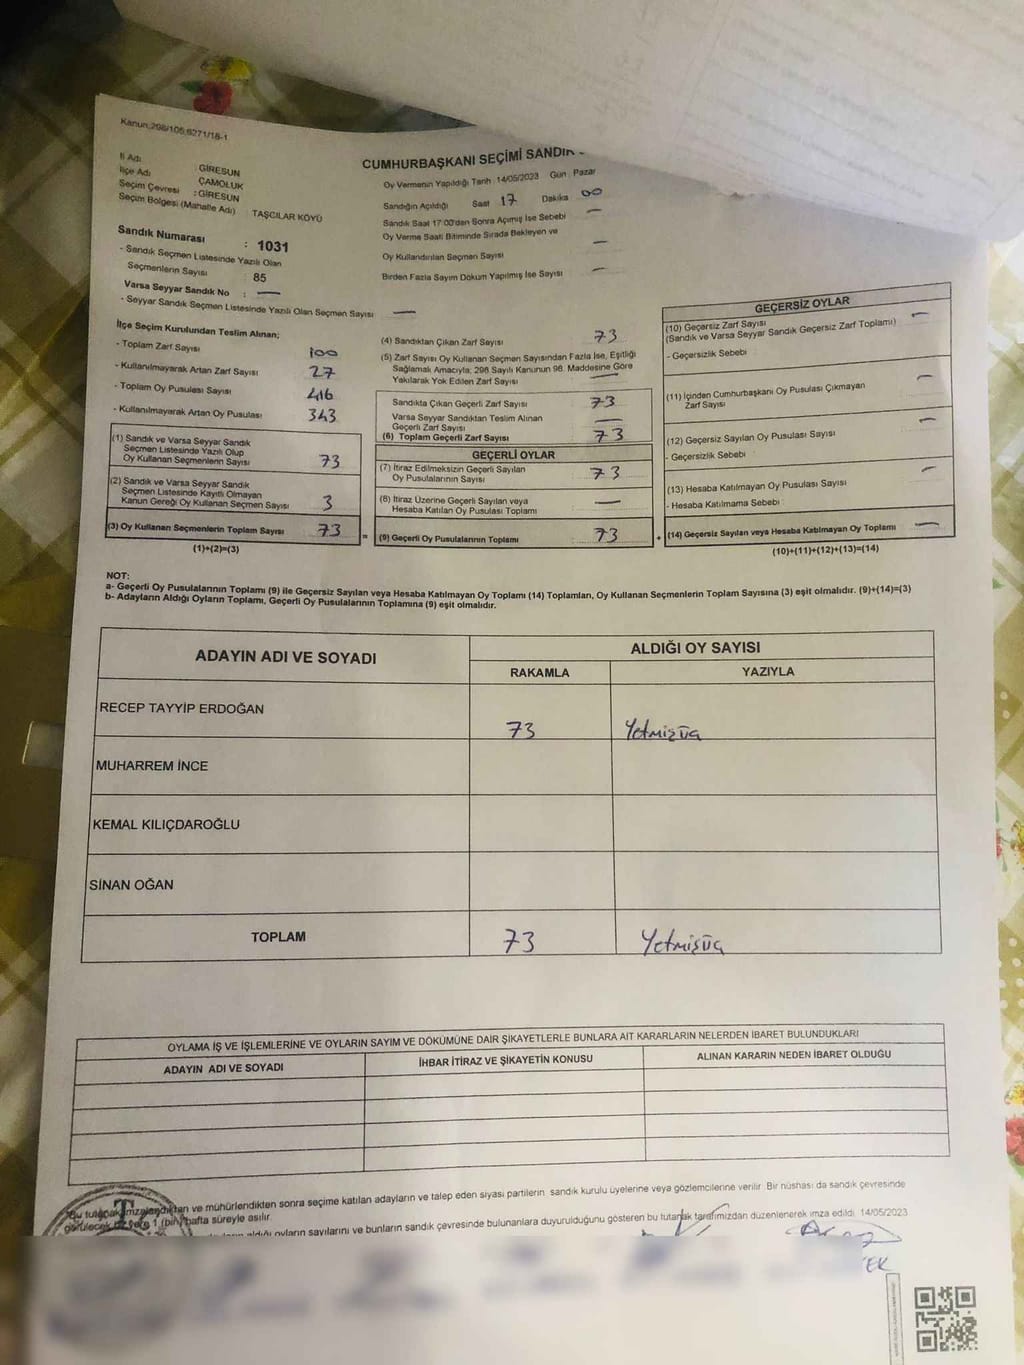 Kanun:298/105,6271/18-1
CUMHURBAŞKANI SEÇİMİ SANDIK
İl Adı : GİRESUN
İlçe Adı : ÇAMOLUK
Seçim Çevresi : GİRESUN
Seçim Bölgesi (Mahalle Adı) : TAŞCILAR KÖYÜ
Sandık Numarası : 1031
- Sandık Seçmen Listesinde Yazılı Olan
Seçmenlerin Sayısı : 85
Varsa Seyyar Sandık No : —
- Seyyar Sandık Seçmen Listesinde Yazılı Olan Seçmen Sayısı —
Oy Vermenin Yapıldığı Tarih : 14/05/2023 Gün : Pazar
Sandığın Açıldığı Saat 17 Dakika 00
Sandık Saat 17:00'den Sonra Açımış İse Sebebi —
Oy Verme Saati Bitiminde Sırada Bekleyen ve
Oy Kullandırılan Seçmen Sayısı —
Birden Fazla Sayım Döküm Yapılmış İse Sayısı —
İlçe Seçim Kurulundan Teslim Alınan;
- Toplam Zarf Sayısı 100
- Kullanılmayarak Artan Zarf Sayısı 27
- Toplam Oy Pusulası Sayısı 416
- Kullanılmayarak Artan Oy Pusulası 343
(1) Sandık ve Varsa Seyyar Sandık
Seçmen Listesinde Yazılı Olup
Oy Kullanan Seçmenlerin Sayısı 73
(2) Sandık ve Varsa Seyyar Sandık
Seçmen Listesinde Kayıtlı Olmayan
Kanun Gereği Oy Kullanan Seçmen Sayısı 3
(3) Oy Kullanan Seçmenlerin Toplam Sayısı 73
(1)+(2)=(3)
(4) Sandıktan Çıkan Zarf Sayısı 73
(5) Zarf Sayısı Oy Kullanan Seçmen Sayısından Fazla İse, Eşitliği
Sağlamak Amacıyla; 298 Sayılı Kanunun 98. Maddesine Göre
Yakılarak Yok Edilen Zarf Sayısı —
Sandıkta Çıkan Geçerli Zarf Sayısı 73
Varsa Seyyar Sandıktan Teslim Alınan
Geçerli Zarf Sayısı —
(6) Toplam Geçerli Zarf Sayısı 73
GEÇERLİ OYLAR
(7) İtiraz Edilmeksizin Geçerli Sayılan
Oy Pusulalarının Sayısı 73
(8) İtiraz Üzerine Geçerli Sayılan veya
Hesaba Katılan Oy Pusulası Toplamı —
= (9) Geçerli Oy Pusulalarının Toplamı 73
GEÇERSİZ OYLAR
(10) Geçersiz Zarf Sayısı —
(Sandık ve Varsa Seyyar Sandık Geçersiz Zarf Toplamı)
- Geçersizlik Sebebi
(11) İçinden Cumhurbaşkanı Oy Pusulası Çıkmayan —
Zarf Sayısı
(12) Geçersiz Sayılan Oy Pusulası Sayısı —
- Geçersizlik Sebebi
(13) Hesaba Katılmayan Oy Pusulası Sayısı —
- Hesaba Katılmama Sebebi
+ (14) Geçersiz Sayılan veya Hesaba Katılmayan Oy Toplamı —
(10)+(11)+(12)+(13)=(14)
NOT:
a- Geçerli Oy Pusulalarının Toplamı (9) ile Geçersiz Sayılan veya Hesaba Katılmayan Oy Toplamı (14) Toplamları, Oy Kullanan Seçmenlerin Toplam Sayısına (3) eşit olmalıdır. (9)+(14)=(3)
b- Adayların Aldığı Oyların Toplamı, Geçerli Oy Pusulalarının Toplamına (9) eşit olmalıdır.
ADAYIN ADI VE SOYADI ALDIĞI OY SAYISI
RAKAMLA YAZIYLA
RECEP TAYYİP ERDOĞAN 73 Yetmişüç
MUHARREM İNCE
KEMAL KILIÇDAROĞLU
SİNAN OĞAN
TOPLAM 73 Yetmişüç
OYLAMA İŞ VE İŞLEMLERİNE VE OYLARIN SAYIM VE DÖKÜMÜNE DAİR ŞİKAYETLERLE BUNLARA AİT KARARLARIN NELERDEN İBARET BULUNDUKLARI
ADAYIN ADI VE SOYADI İHBAR İTİRAZ VE ŞİKAYETİN KONUSU ALINAN KARARIN NEDEN İBARET OLDUĞU
Bu tutanak imzalandıktan ve mühürlendikten sonra seçime katılan adayların ve talep eden siyasi partilerin sandık kurulu üyelerine veya gözlemcilerine verilir. Bir nüshası da sandık çevresinde
görülecek bir yere 1 (bir) hafta süreyle asılır.
aldığı oyların sayılarını ve bunların sandık çevresinde bulunanlara duyurulduğunu gösteren bu tutanak tarafımızdan düzenlenerek imza edildi. 14/05/2023
T.C.